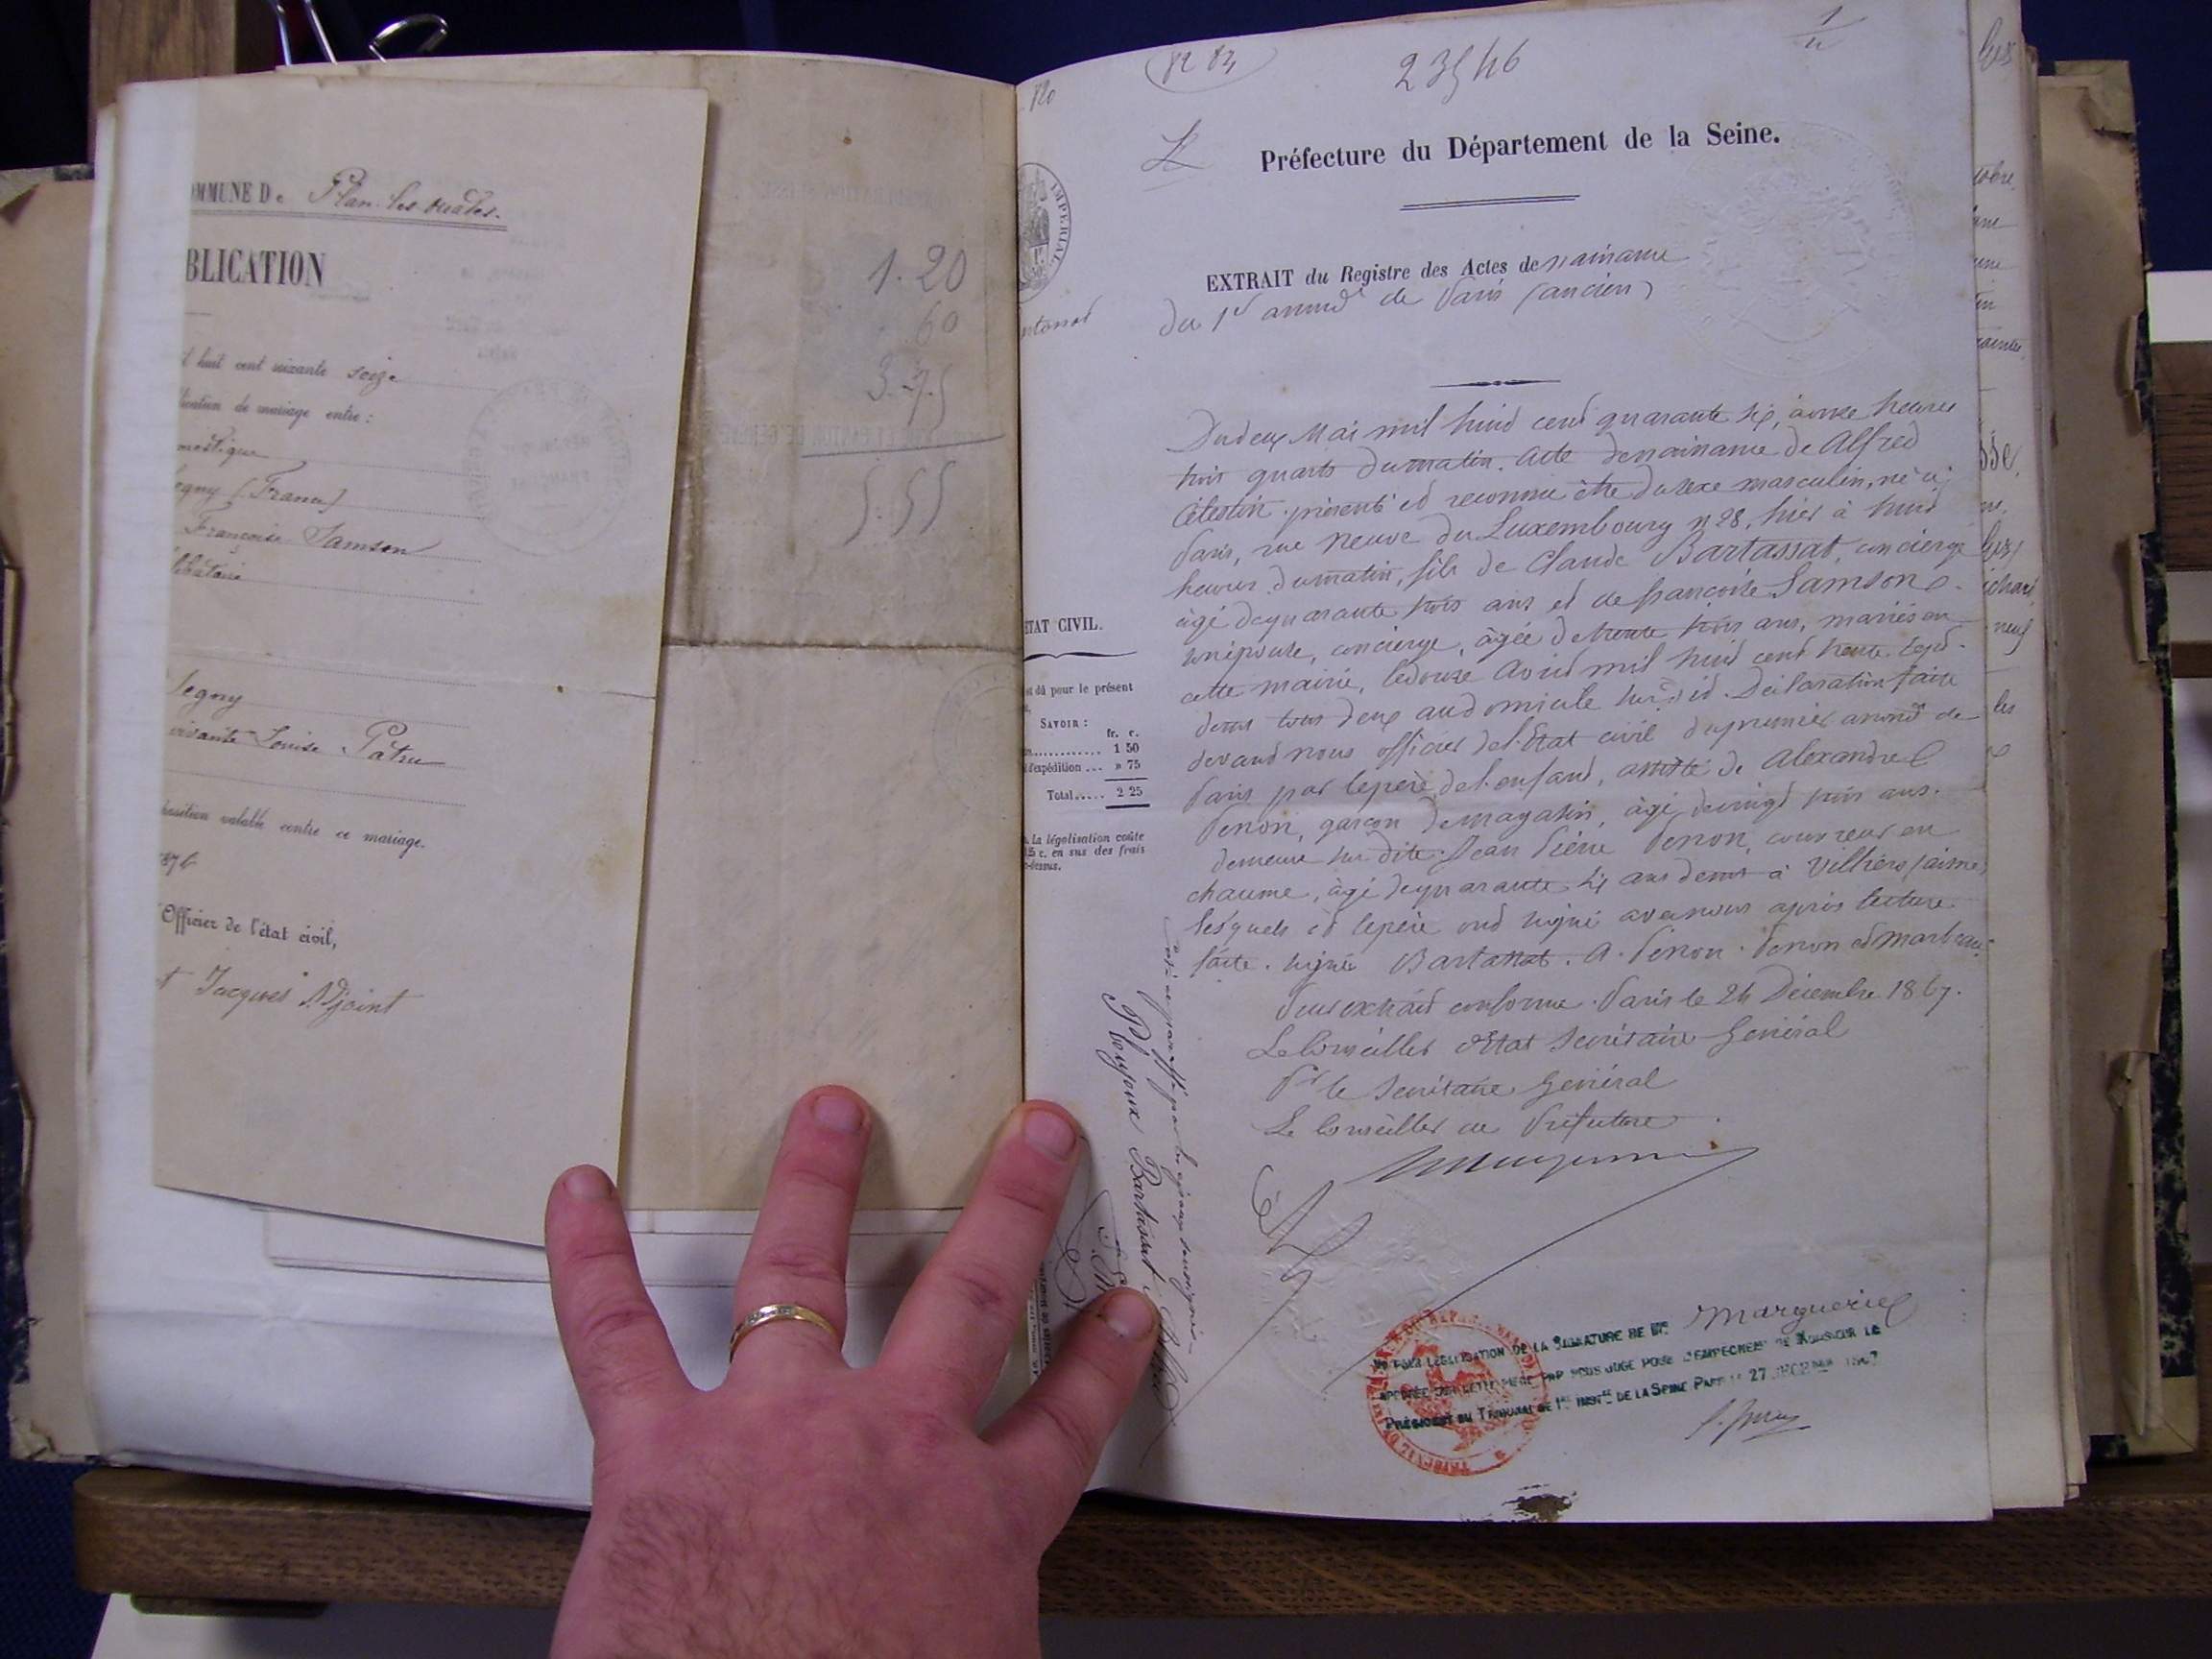 OMMUNE De Plan-les-ouates.
BLICATION
l huit cent soixante seize
lication de mariage entre :
mestique
egny (France)
Françoise Samson
libataire
Segny
Louise Patru
position valable contre ce mariage.
1876
Officier de l'état civil,
Jacques Adjoint
1.20
60
3.75
5.55
120
82 83
23546
Préfecture du Département de la Seine.
IMPERIAL
EXTRAIT du Registre des Actes de naissance
du 1er arrondt de Paris (ancien)
Du deux Mai mil huit cent quarante six, à onze heures
trois quarts du matin. Acte de naissance de Alfred
Célestin présenté et reconnu être du sexe masculin, né à
Paris, rue Neuve du Luxembourg n 28, hier à huit
heures du matin, fils de Claude Bartassat, concierge
âgé de quarante trois ans et de françoise Samson
son épouse, concierge, âgée de trente trois ans, mariés en
cette mairie, le douze Avril mil huit cent trente sept.
demt tous deux au domicile susdit. Déclaration faite
devant nous officier de l'Etat civil du premier arrondt de
Paris par le père de l'enfant, assisté de Alexandre
Penon, garçon de magasin, âgé de vingt trois ans.
demeure sus dite. Jean Pierre Penon, couvreur en
chaume, âgé de quarante six ans demt à Villiers (aisne)
lesquels et le père ont signé avec nous après lecture
faite. signé Bartassat. A. Penon. Penon et Marbeau
Pour extrait conforme. Paris le 24 Décembre 1867.
Le Conseiller d'Etat Secrétaire Général
Pr le Secrétaire Général
Le Conseiller de Préfecture
ETAT CIVIL.
et dû pour le présent
SAVOIR :
fr. c.
1 50
d'expédition ... » 75
Total..... 2 25
La légalisation coûte
25 c. en sus des frais
Ploujoux Bartassat
VU POUR LEGALISATION DE LA SIGNATURE DE Mr Marguerie
APPOSÉE SUR CETTE PIECE PAR NOUS JUGE POUR L'EMPECHEMt DE MONSIEUR LE
PRÉSIDENT DU TRIBUNAL DE 1re INSTce DE LA SEINE PARIS LE 27 DECEMBRE 1867